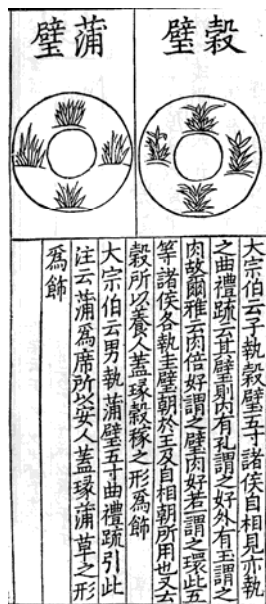 穀璧
蒲璧
大宗伯云子執穀璧五寸諸侯自相見亦執
之曲禮疏云其璧則内有孔謂之好外有玉謂之
肉故爾雅云肉倍好謂之璧肉好若一謂之環此五
等諸侯各執圭璧朝於王及自相朝所用也又云
穀所以養人蓋瑑穀稼之形爲飾
大宗伯云男執蒲璧五寸曲禮疏引此
注云蒲爲席所以安人蓋瑑蒲草之形
爲飾